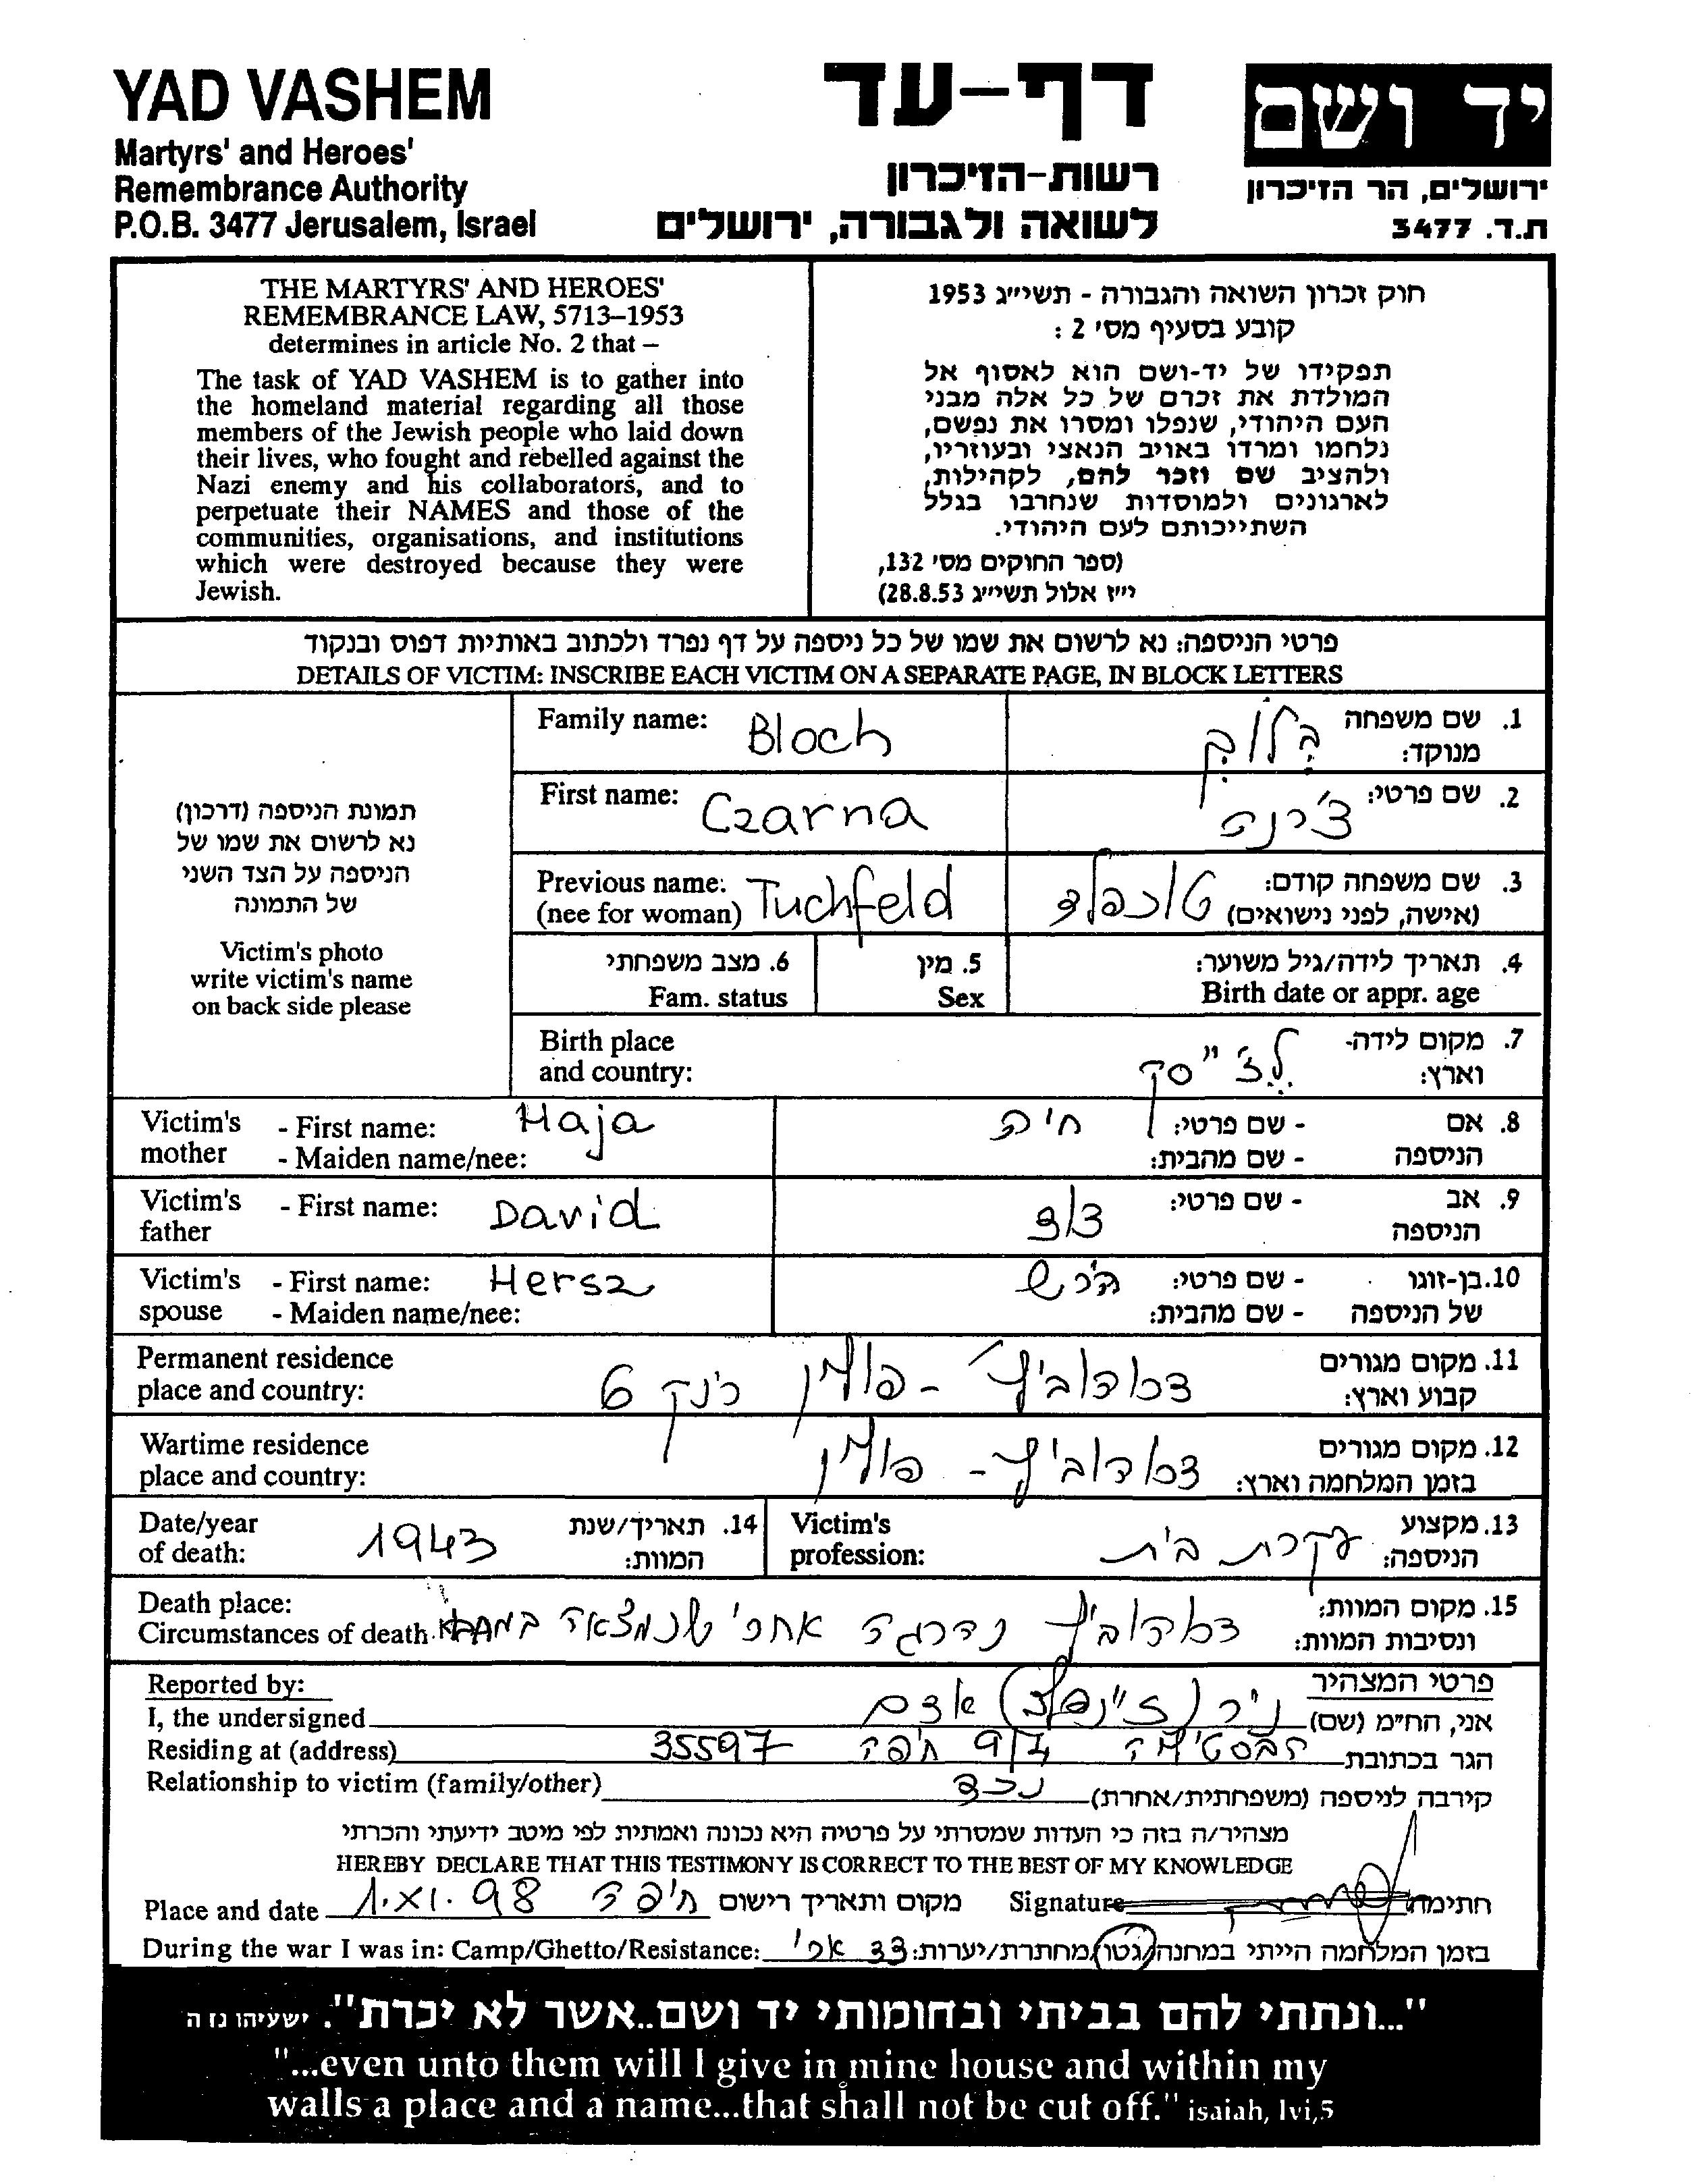 YAD VASHEM
Martyrs' and Heroes'
Remembrance Authority
P.O.B. 3477 Jerusalem, Israel
דף-עד
רשות-הזיכרון
לשואה ולגבורה, ירושלים
יד ושם
ירושלים, הר הזיכרון
ת.ד. 3477
THE MARTYRS' AND HEROES'
REMEMBRANCE LAW, 5713–1953
determines in article No. 2 that –
The task of YAD VASHEM is to gather into
the homeland material regarding all those
members of the Jewish people who laid down
their lives, who fought and rebelled against the
Nazi enemy and his collaborators, and to
perpetuate their NAMES and those of the
communities, organisations, and institutions
which were destroyed because they were
Jewish.
חוק זכרון השואה והגבורה - תשי״ג 1953
קובע בסעיף מס׳ 2 :
תפקידו של יד-ושם הוא לאסוף אל
המולדת את זכרם של כל אלה מבני
העם היהודי, שנפלו ומסרו את נפשם,
נלחמו ומרדו באויב הנאצי ובעוזריו,
ולהציב שם וזכר להם, לקהילות,
לארגונים ולמוסדות שנחרבו בגלל
השתייכותם לעם היהודי.
(ספר החוקים מס׳ 132,
י״ז אלול תשי״ג 28.8.53)
פרטי הניספה: נא לרשום את שמו של כל ניספה על דף נפרד ולכתוב באותיות דפוס ובנקוד
DETAILS OF VICTIM: INSCRIBE EACH VICTIM ON A SEPARATE PAGE, IN BLOCK LETTERS
תמונת הניספה (דרכון)
נא לרשום את שמו של
הניספה על הצד השני
של התמונה
Victim's photo
write victim's name
on back side please
Family name: Bloch
1. שם משפחה בלוך
מנוקד:
First name: Czarna
2. שם פרטי: צ'רנה
Previous name: Tuchfeld
(nee for woman)
3. שם משפחה קודם: טוכפלד
(אישה, לפני נישואים)
6. מצב משפחתי
Fam. status
5. מין
Sex
4. תאריך לידה/גיל משוער:
Birth date or appr. age
Birth place
and country:
7. מקום לידה-
וארץ:
Victim's mother - First name: Haja
- Maiden name/nee:
8. אם הניספה - שם פרטי: חיה
- שם מהבית:
Victim's father - First name: David
9. אב הניספה - שם פרטי: דוד
Victim's spouse - First name: Hersz
- Maiden name/nee:
10. בן-זוגו של הניספה - שם פרטי: הרש
- שם מהבית:
Permanent residence
place and country:
11. מקום מגורים
קבוע וארץ: דרוהוביץ' - פולין רינק 6
Wartime residence
place and country:
12. מקום מגורים
בזמן המלחמה וארץ: דרוהוביץ - פולין
Date/year
of death: 1943
14. תאריך/שנת
המוות:
Victim's
profession:
13. מקצוע
הניספה: עקרת בית
Death place:
Circumstances of death
15. מקום המוות:
ונסיבות המוות: דרוהוביץ נהרגה אחרי שנמצאה
Reported by:
I, the undersigned
Residing at (address)
Relationship to victim (family/other)
פרטי המצהיר
אני, הח״מ (שם) ניר אדם
הגר בכתובת חיפה 35597
קירבה לניספה (משפחתית/אחרת) נכד
מצהיר/ה בזה כי העדות שמסרתי על פרטיה היא נכונה ואמתית לפי מיטב ידיעתי והכרתי
HEREBY DECLARE THAT THIS TESTIMONY IS CORRECT TO THE BEST OF MY KNOWLEDGE
Place and date 1.XI.98 חיפה מקום ותאריך רישום
Signature חתימה
During the war I was in: Camp/Ghetto/Resistance:
בזמן המלחמה הייתי במחנה/גטו/מחתרת/יערות: צד ארי
"...ונתתי להם בביתי ובחומותי יד ושם..אשר לא יכרת". ישעיהו נו ה
"...even unto them will I give in mine house and within my
walls a place and a name...that shall not be cut off." isaiah, lvi,5